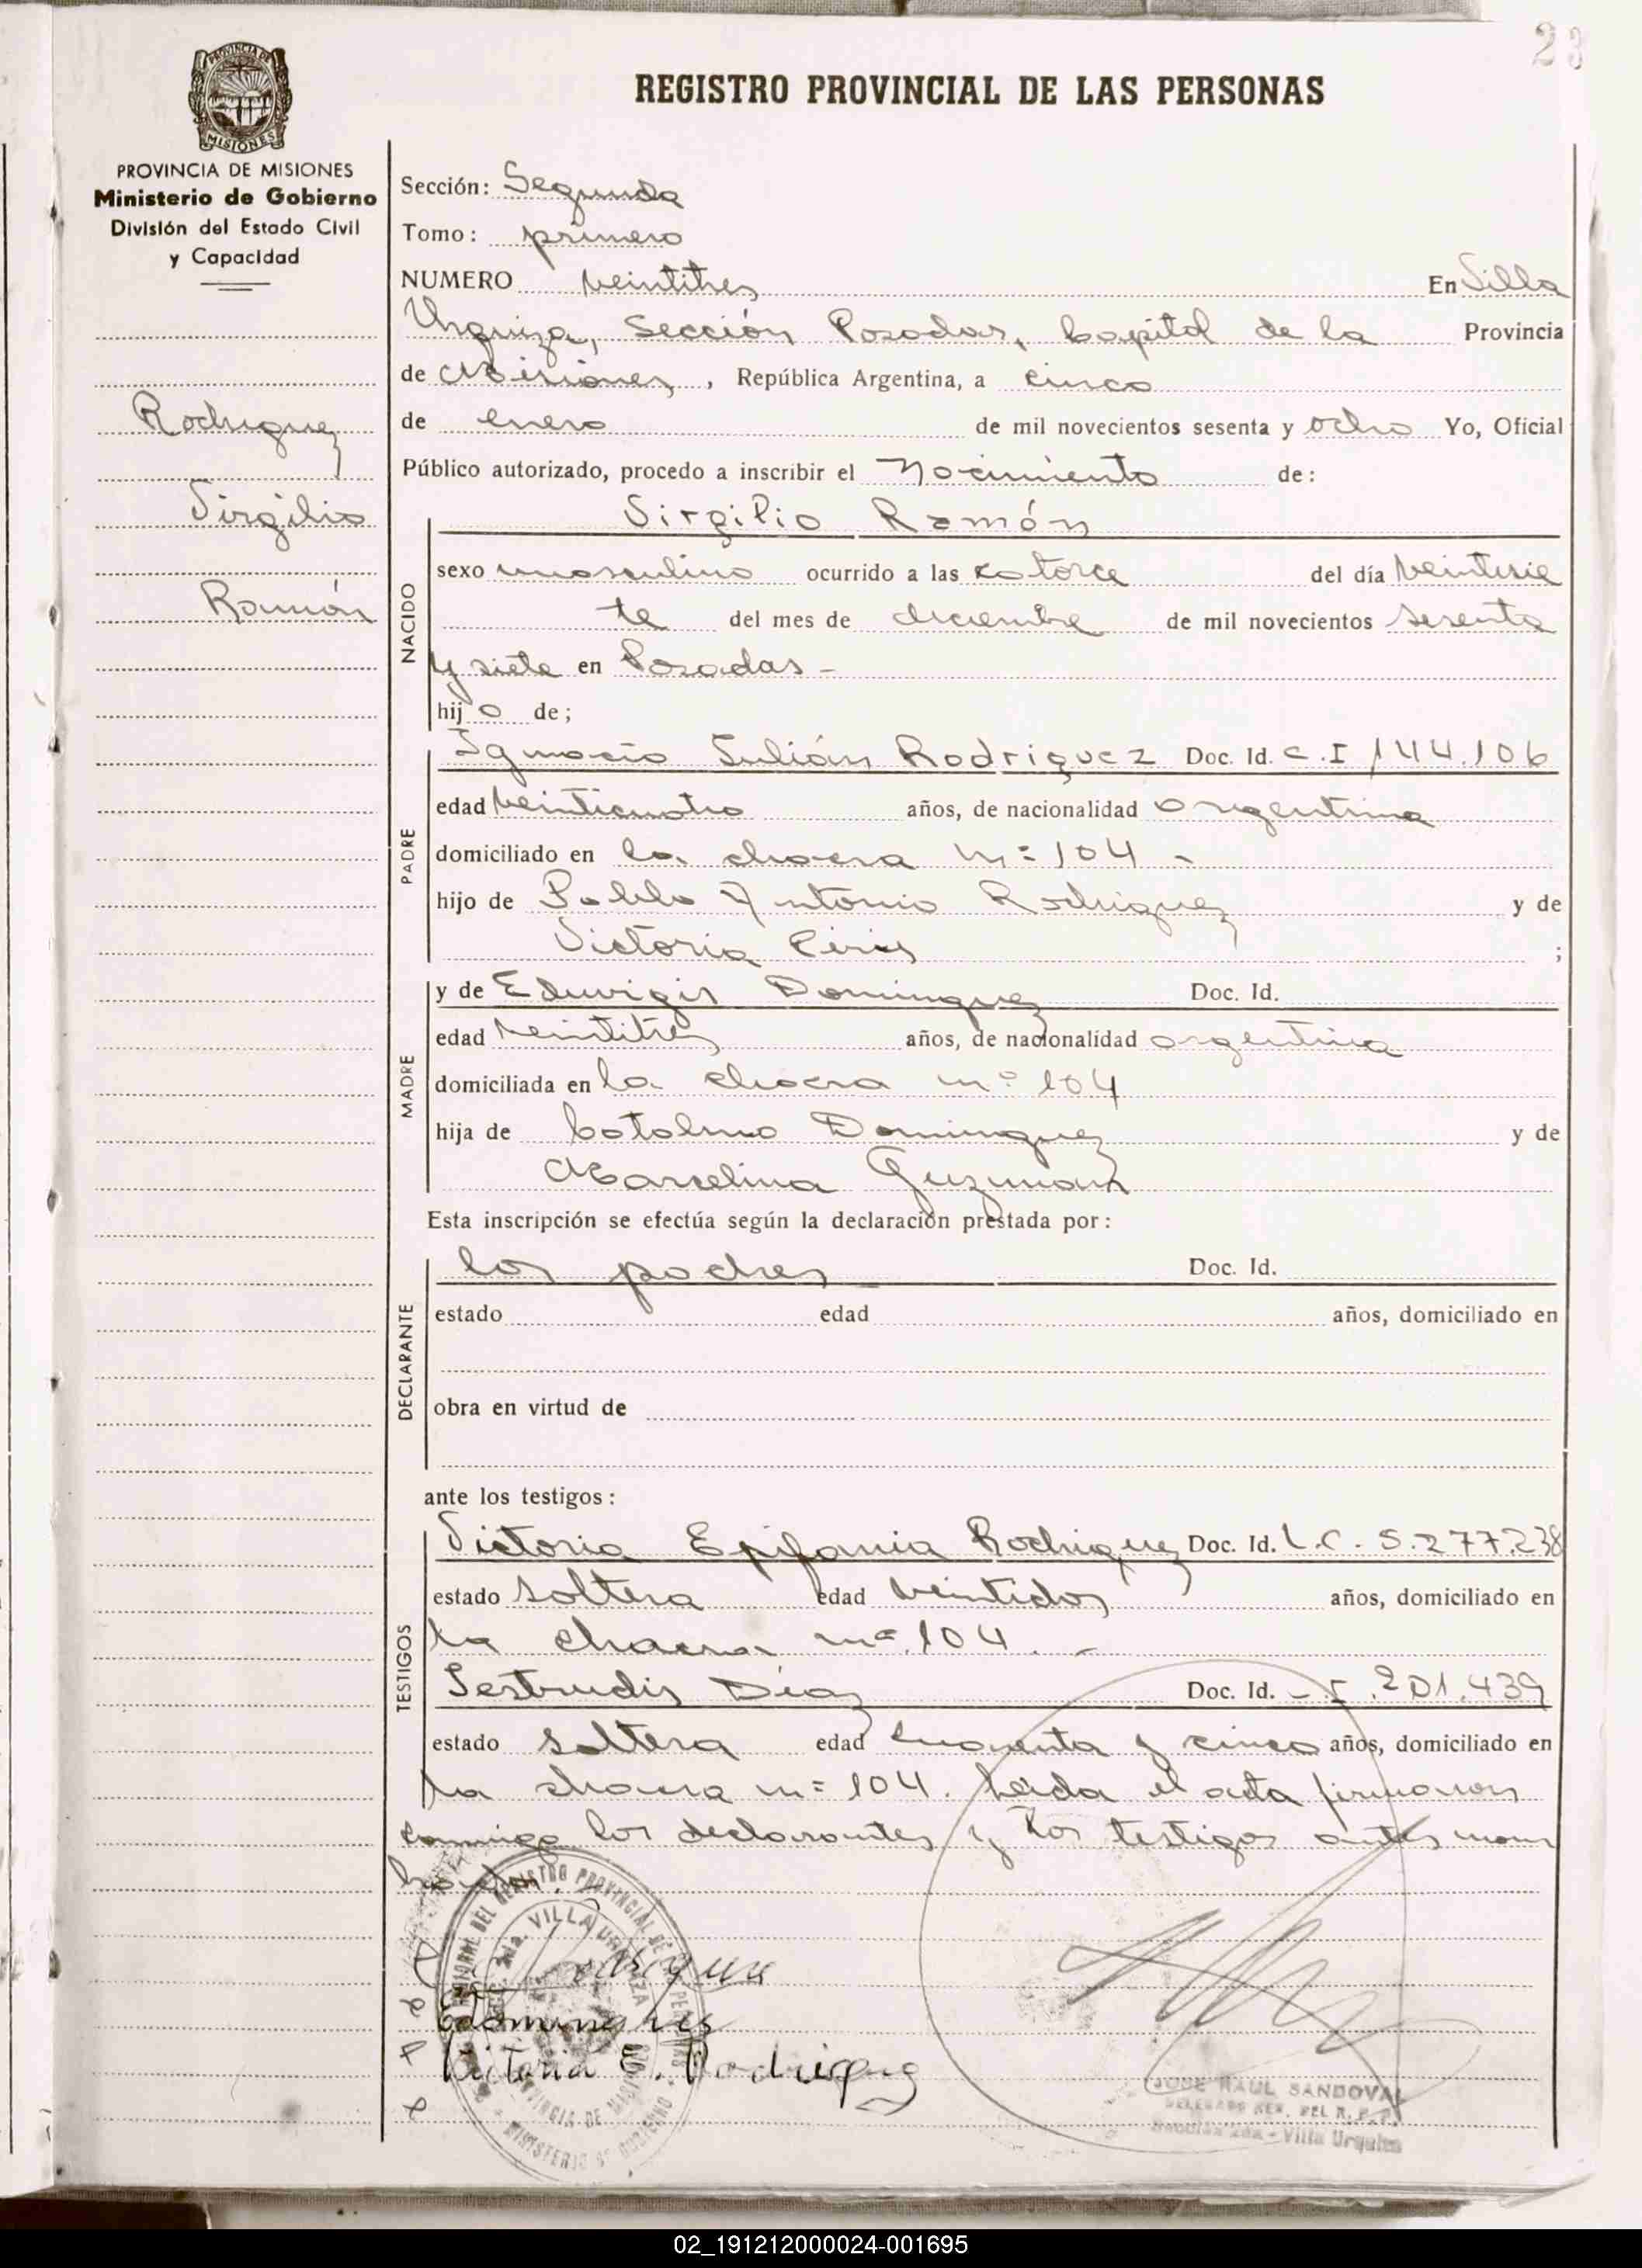 23
REGISTRO PROVINCIAL DE LAS PERSONAS
PROVINCIA DE MISIONES
MISIONES
PROVINCIA DE MISIONES
Ministerio de Gobierno
División del Estado Civil
y Capacidad
Rodriguez
Virgilio
Ramón
Sección: Segunda
Tomo: primero
NUMERO veintitres En Villa
Urquiza, Sección Posadas, Capital de la Provincia
de Misiones, República Argentina, a cinco
de enero de mil novecientos sesenta y ocho Yo, Oficial
Público autorizado, procedo a inscribir el Nacimiento de:
Virgilio Ramón
NACIDO
sexo masculino ocurrido a las catorce del día veintisie
te del mes de diciembre de mil novecientos sesenta
y siete en Posadas -
hijo de;
PADRE
Ignacio Julián Rodriguez Doc. Id. C.I 144.106
edad veinticuatro años, de nacionalidad argentina
domiciliado en la chacra nº 104 -
hijo de Pablo Antonio Rodriguez y de
Victoria Piris ;
MADRE
y de Eduvigis Dominguez Doc. Id.
edad veintitres años, de nacionalidad argentina
domiciliada en la chacra nº 104
hija de Catalino Dominguez y de
Marcelina Guzman
Esta inscripción se efectúa según la declaración prestada por:
DECLARANTE
los padres Doc. Id.
estado edad años, domiciliado en
obra en virtud de
ante los testigos:
TESTIGOS
Victoria Epifania Rodriguez Doc. Id. L.C. 5.277.238
estado soltera edad veintidos años, domiciliado en
la chacra nº 104. -
Gertrudis Diaz Doc. Id. 201.439
estado soltera edad cuarenta y cinco años, domiciliado en
la chacra nº 104. Leida el acta firmaron
conmigo los declarantes y los testigos antes mencionados
Rodriguez
Victoria E. Rodriguez
REGISTRO PROVINCIAL DE
VILLA URQUIZA
PROVINCIA DE MISIONES
MINISTERIO DE GOBIERNO
JOSE RAUL SANDOVAL
DELEGADO REG. DEL R. P. P.
Sección 2da - Villa Urquiza
02_191212000024-001695